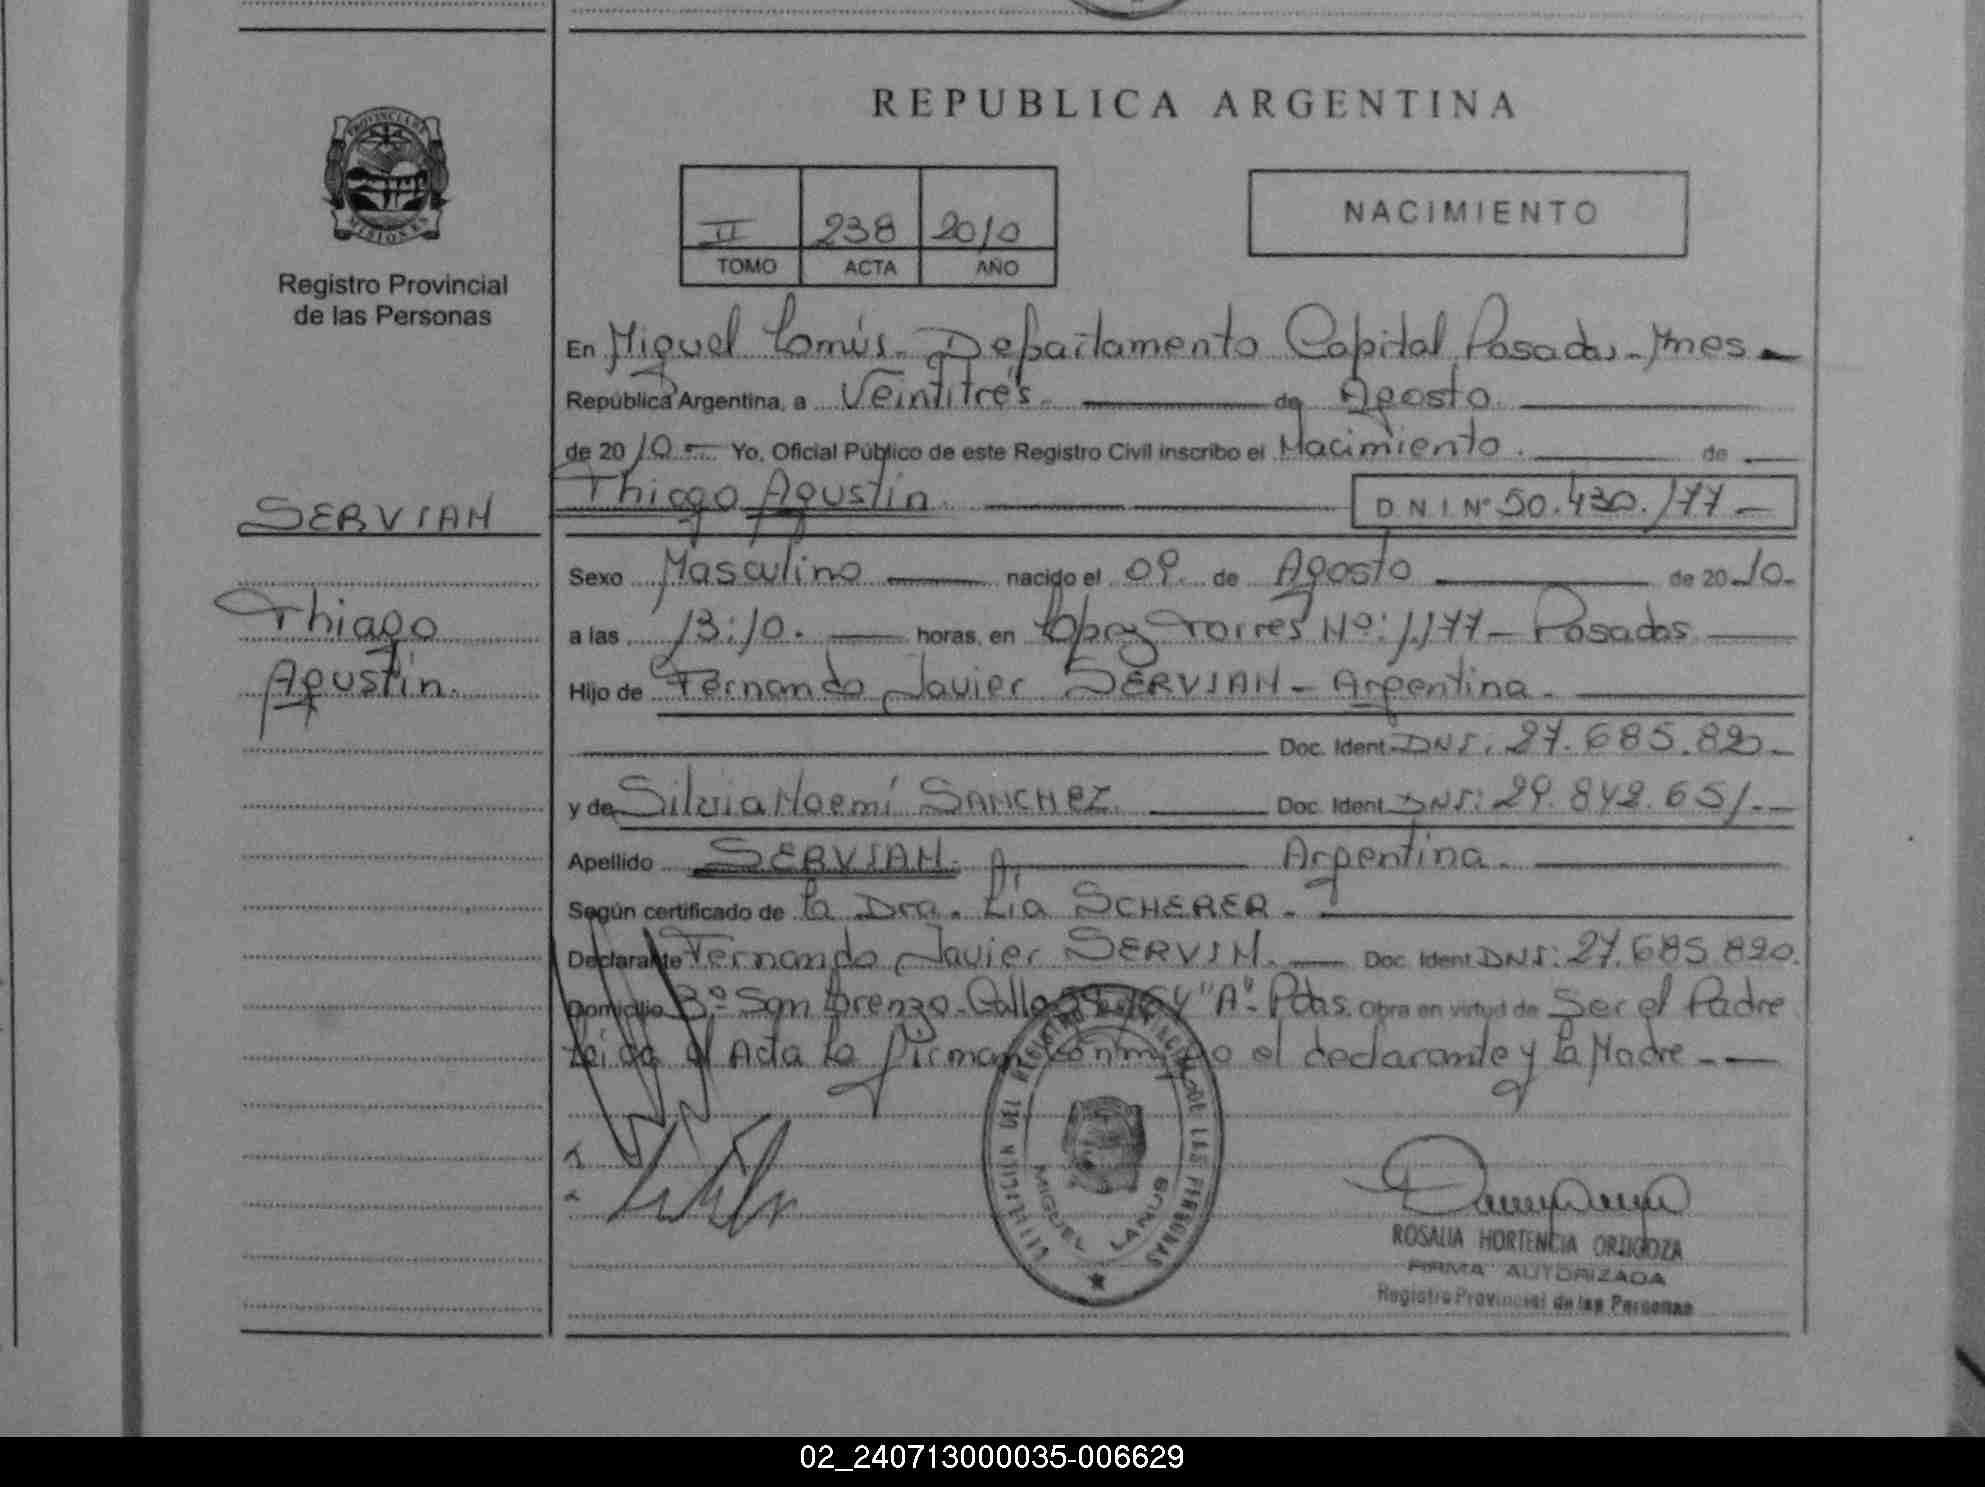 REPUBLICA ARGENTINA
PROVINCIA DE
MISIONES
Registro Provincial
de las Personas
II 238 2010
TOMO ACTA AÑO
NACIMIENTO
En Miguel Lanús - Departamento Capital Posadas - Mnes
República Argentina, a Veintitrés de Agosto
de 2010 - Yo, Oficial Público de este Registro Civil inscribo el Nacimiento. de
Thiago Agustín. D.N.I. Nº 50.430.177 -
SERVIAN
Thiago
Agustín.
Sexo Masculino nacido el 09. de Agosto de 2010.
a las 13:10. horas, en López Torres Nº: 1.177 - Posadas
Hijo de Fernando Javier SERVIAN - Argentina.
Doc. Ident. DNI. 27.685.820 -
y de Silvia Noemí SANCHEZ. Doc. Ident. DNI: 29.842.651. -
Apellido SERVIAN. Argentina.
Según certificado de la Dra. Lía SCHERER.
Declarante Fernando Javier SERVIN. Doc. Ident. DNI: 27.685.820.
Domicilio Bº San Lorenzo - Calle "A" - Pdas. Obra en virtud de Ser el Padre
Leída el Acta la firman conmigo el declarante y la Madre -
DEL REGISTRO PROVINCIAL DE LAS PERSONAS
MIGUEL LANUS
ROSALIA HORTENCIA ORTIGOZA
FIRMA AUTORIZADA
Registro Provincial de las Personas
02_240713000035-006629